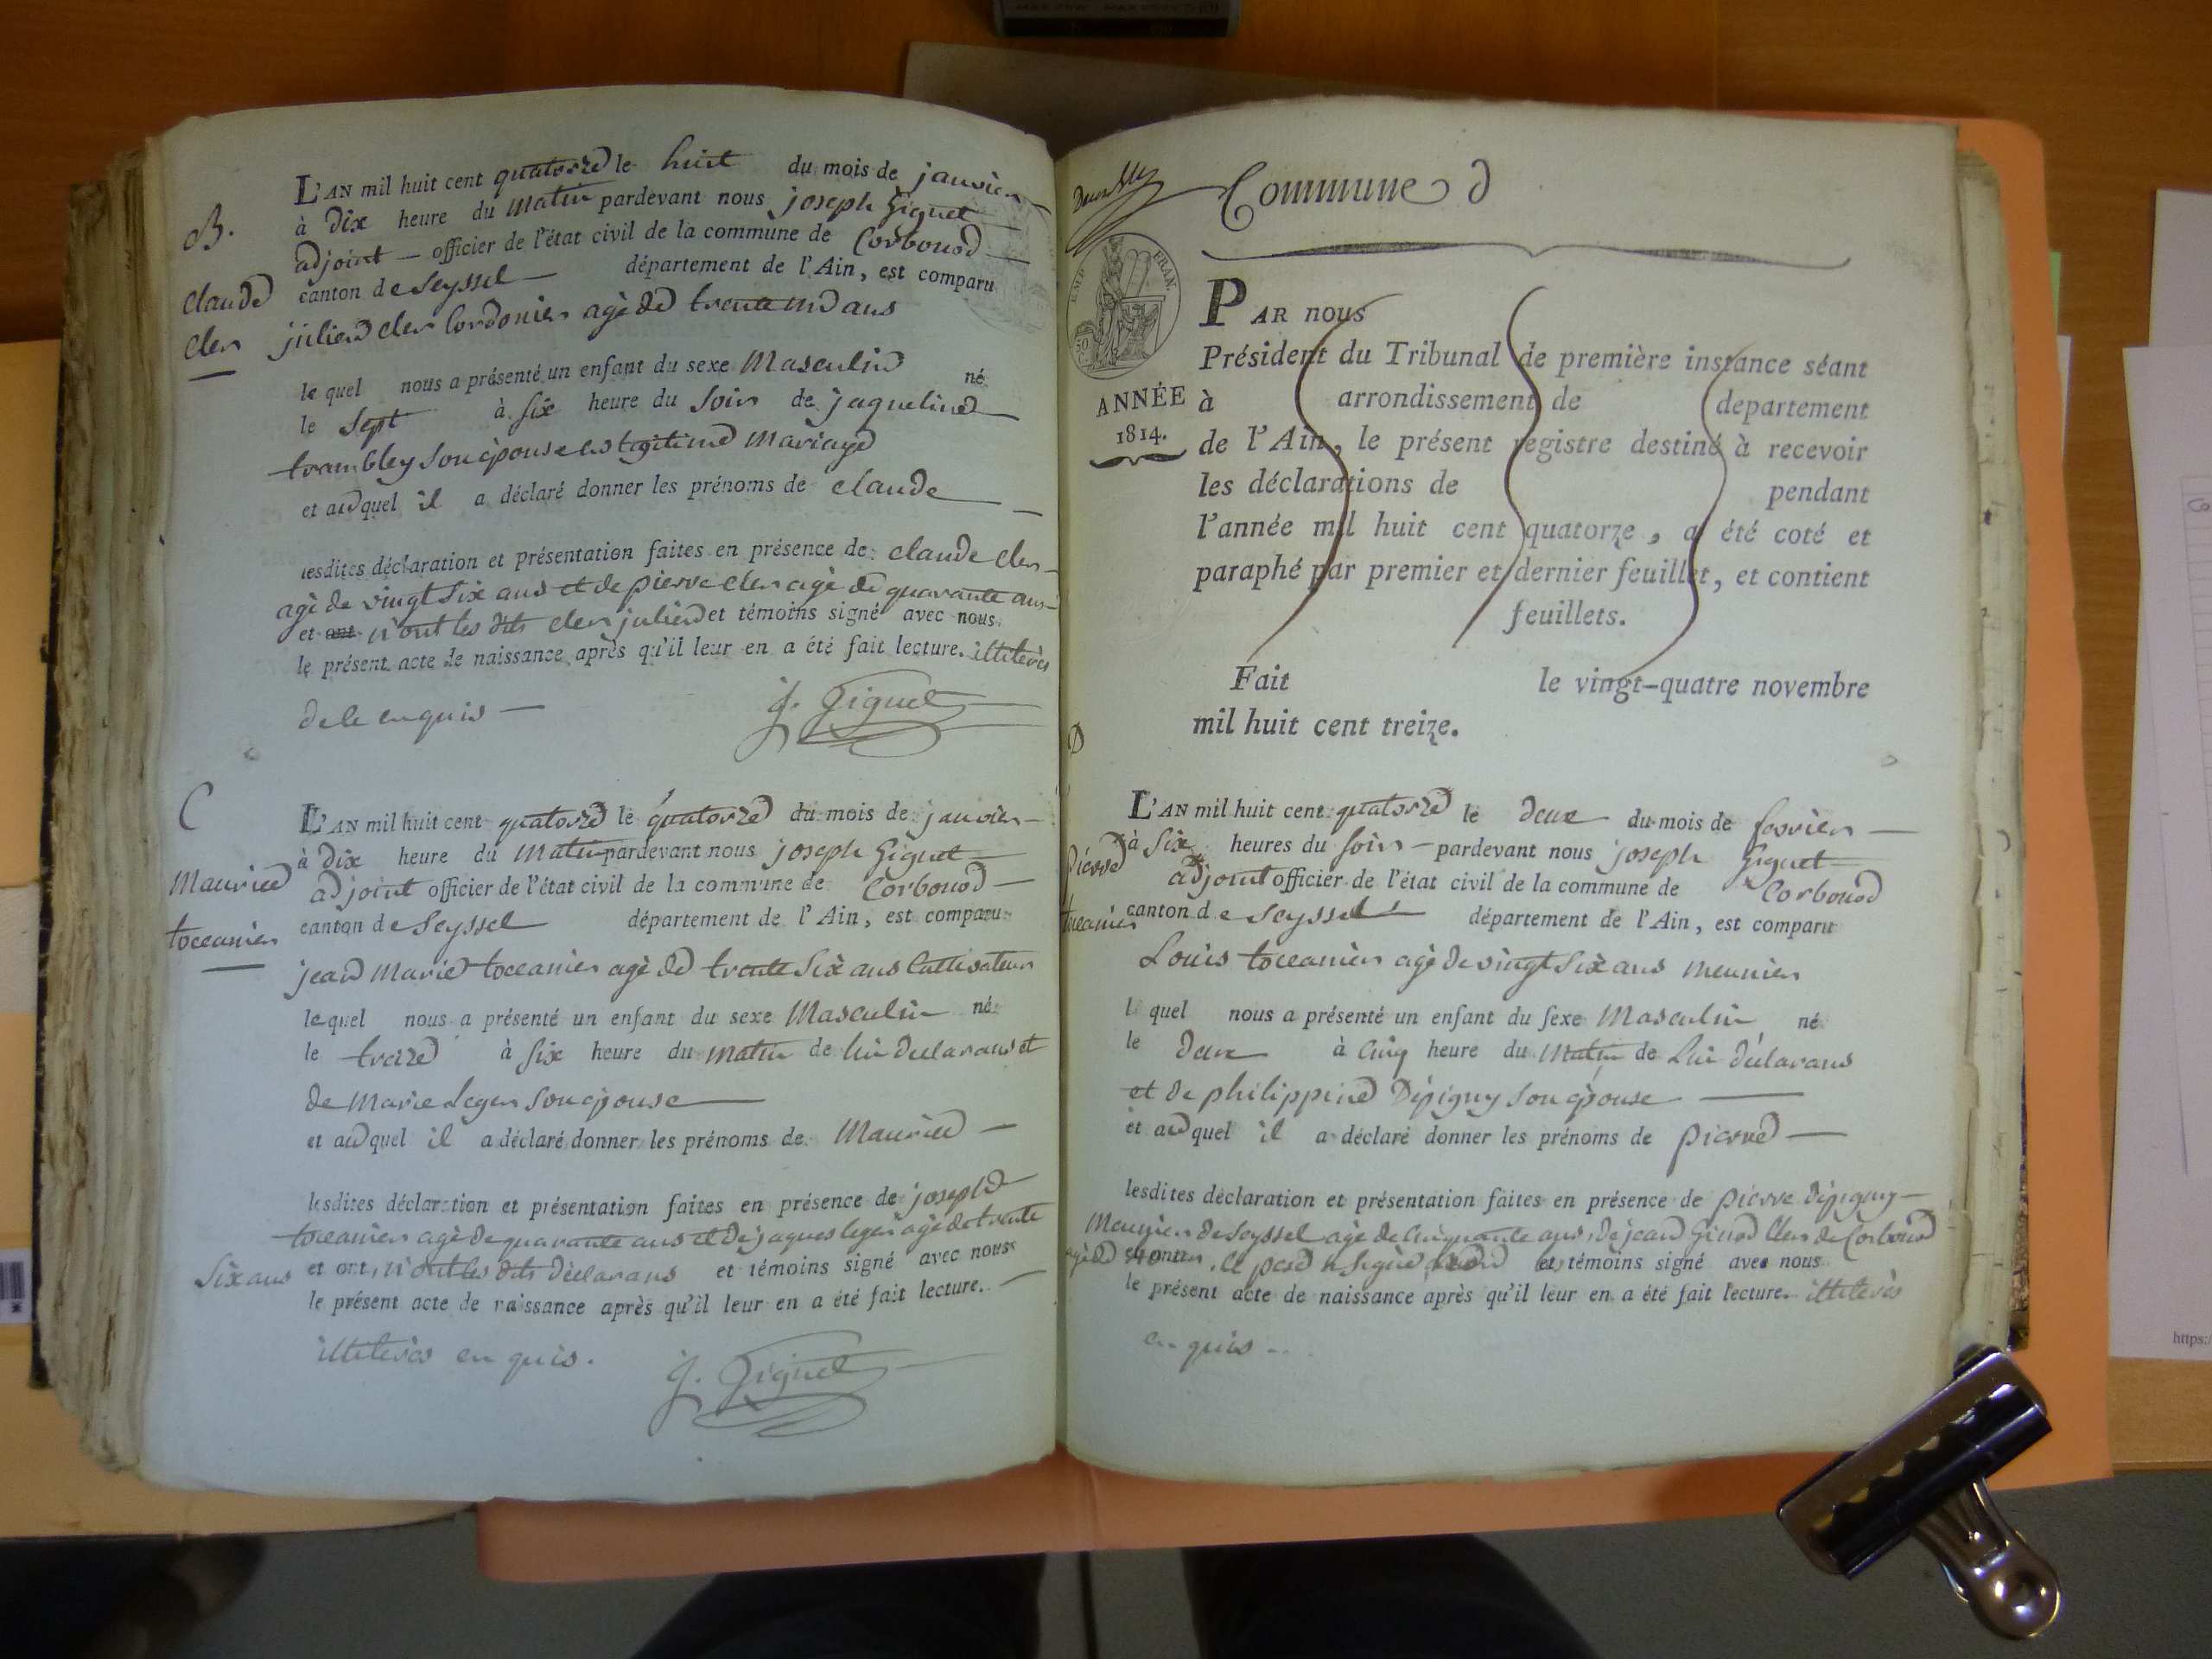 B.
claude
cler
L'AN mil huit cent quatorze le huit du mois de janvier
à dix heure du matin pardevant nous joseph Giguet
adjoint officier de l'état civil de la commune de Corbonod
canton de Seyssel département de l'Ain, est comparu
julien cler Cordonier agè de trente un ans
le quel nous a présenté un enfant du sexe Masculin né
le Sept à Six heure du Soir de jaqueline
trambley son èpouse en legitime Mariage
et auquel il a déclaré donner les prénoms de claude
lesdites déclaration et présentation faites en présence de claude cler
agè de vingt Six ans et de pierre cler agè de quarante ans
et ont n'ont les dits cler julien et témoins signé avec nous
le présent acte de naissance après qu'il leur en a été fait lecture. illiterès
de le enquis
J. Giguet
C
Maurice
toccanier
L'AN mil huit cent quatorze le quatorze du mois de janvier
à dix heure du Matin pardevant nous joseph Giguet
adjoint officier de l'état civil de la commune de Corbonod
canton de Seyssel département de l'Ain, est comparu
jean Marie toccanier agè de trente Six ans Cultivateur
le quel nous a présenté un enfant du sexe Masculin né
le treize à Six heure du matin de lui declarans et
de Marie Leger son èpouse
et auquel il a déclaré donner les prénoms de Maurice
lesdites déclaration et présentation faites en présence de joseph
toccanier agè de quarante ans et de jaques leger agè de trente
Six ans et ont, n'ont les dits dèclarans et témoins signé avec nous
le présent acte de naissance après qu'il leur en a été fait lecture.
illiterès en quis.
J. Giguet
Commune d
EMP. FRAN.
50
ANNÉE
1814.
PAR nous
Président du Tribunal de première instance séant
à arrondissement de departement
de l'Ain, le présent registre destiné à recevoir
les déclarations de pendant
l'année mil huit cent quatorze, a été coté et
paraphé par premier et dernier feuillet, et contient
feuillets.
Fait le vingt-quatre novembre
mil huit cent treize.
D
pierre
toccanier
L'AN mil huit cent quatorze le deux du mois de fevrier
à Six heures du Soir pardevant nous joseph Giguet
adjoint officier de l'état civil de la commune de Corbonod
canton de Seyssel département de l'Ain, est comparu
Louis toccanier agè de vingt Six ans meunier
l quel nous a présenté un enfant du sexe Masculin né
le deux à Cinq heure du Matin de Lui dèclarans
et de philippine Dèpigny son èpouse
et auquel il a déclaré donner les prénoms de pierre
lesdites déclaration et présentation faites en présence de pierre dèpigny
Meunier de Seyssel agè de Cinquante ans, de jean Ginod Cler de Corbonod
agè de le témoins signé avec nous
le présent acte de naissance après qu'il leur en a été fait lecture. illiterès
en quis
https:/